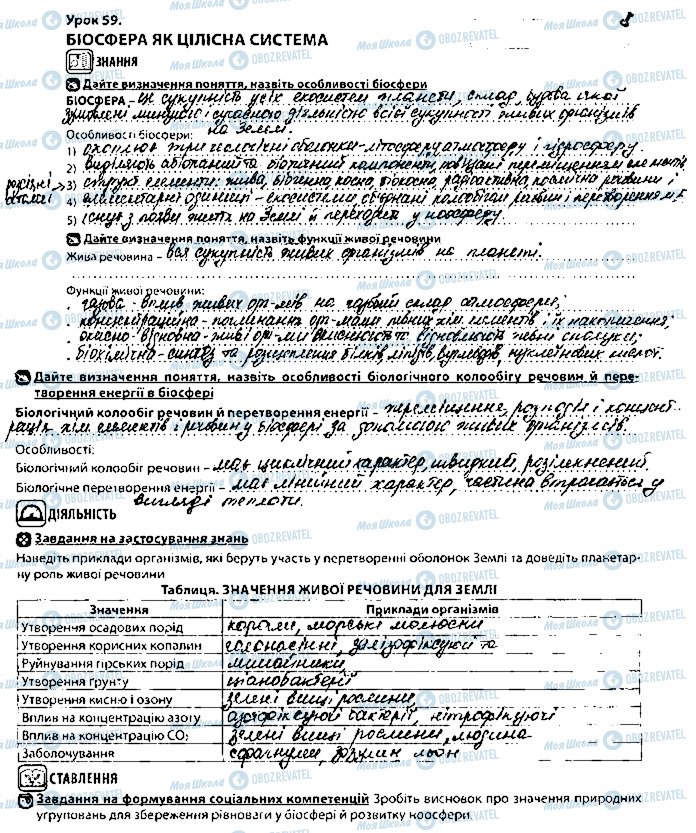 Урок 59.
БІОСФЕРА ЯК ЦІЛІСНА СИСТЕМА
ЗНАННЯ
Дайте визначення поняття, назвіть особливості біосфери
БІОСФЕРА – це сукупність усіх екосистем планети, склад, будова якої
зумовлені минулою і сучасною діяльністю всієї сукупності живих організмів
на Землі.
Особливості біосфери:
1) охоплює три геологічні оболонки - літосферу, атмосферу і гідросферу.
2) виділяють абіотичний та біотичний компоненти, пов'язані переміщенням елементів
3) структ. елементи: жива, біогенна, косна, біокосна, радіоактивна, космічна речовини і
розсіяні атоми
4) елементарні одиниці - екосистеми, об'єднані колообігом речовин і перетворенням
5) існує з появи життя на Землі й переходить у ноосферу.
Дайте визначення поняття, назвіть функції живої речовини
Жива речовина – вся сукупність живих організмів на планеті.
Функції живої речовини:
газова - вплив живих орг-мів на газовий склад атмосфери;
концентраційна - поглинання орг-мами певних хім. елементів, їх накопичення;
окисно-відновна - живі орг-ми окиснюють та відновлюють певні сполуки;
біохімічна - синтез та розщеплення білків, ліпідів, вуглеводів, нуклеїнових кислот.
Дайте визначення поняття, назвіть особливості біологічного колообігу речовин й пере-
творення енергії в біосфері
Біологічний колообіг речовин й перетворення енергії – переміщення, розподіл і концент-
рація хім. елементів і речовин у біосфері за допомогою живих організмів.
Особливості:
Біологічний колообіг речовин – має циклічний характер, швидкий, розімкнений.
Біологічне перетворення енергії – має лінійний характер, частина втрачається у
вигляді теплоти.
ДІЯЛЬНІСТЬ
Завдання на застосування знань
Наведіть приклади організмів, які беруть участь у перетворенні оболонок Землі та доведіть планетар-
ну роль живої речовини
Таблиця. ЗНАЧЕННЯ ЖИВОЇ РЕЧОВИНИ ДЛЯ ЗЕМЛІ
Значення Приклади організмів
Утворення осадових порід корали, морські молюски
Утворення корисних копалин голонасінні, залізофіксуючі та
Руйнування гірських порід лишайники
Утворення ґрунту ціанобактерії
Утворення кисню і озону зелені вищі рослини
Вплив на концентрацію азоту азотфіксуючі бактерії, нітрофікуючі
Вплив на концентрацію CO₂ зелені вищі рослини, людина
Заболочування сфагнум, зозулин льон
СТАВЛЕННЯ
Завдання на формування соціальних компетенцій Зробіть висновок про значення природних
угруповань для збереження рівноваги у біосфері й розвитку ноосфери.
Моя Школа OBOZREVATEL